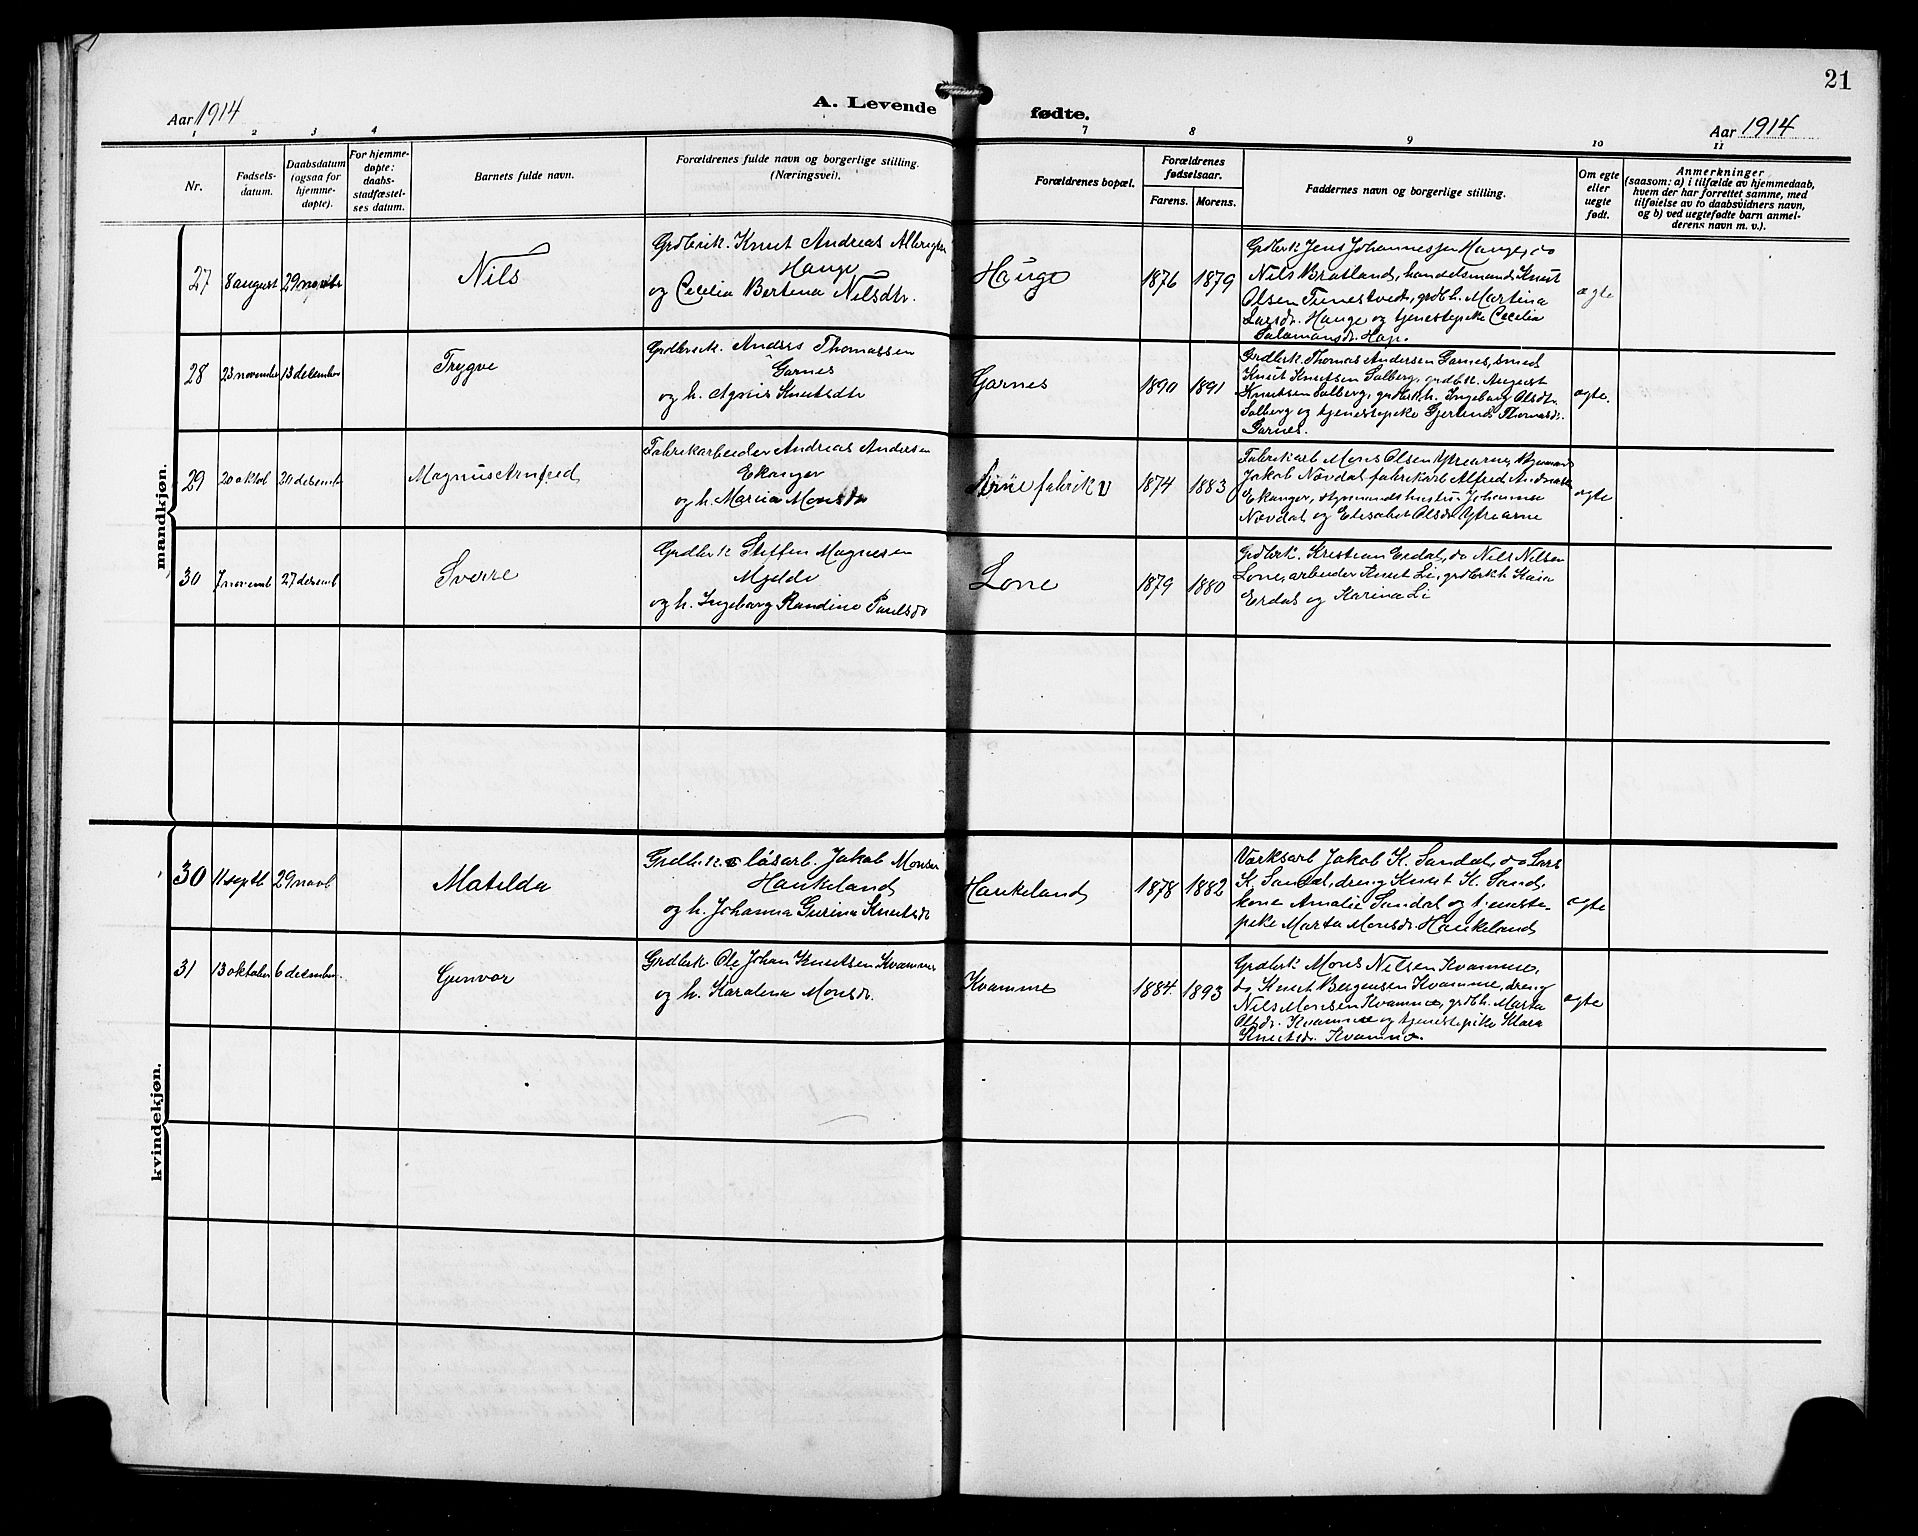 21
Aar 1914
A. Levende
fødte.
Aar 1914
1 2 3 4 7 8 9 10 11
Nr.
Fødsels-
datum.
Daabsdatum
(ogsaa for
hjemme-
døpte).
For hjemme-
døpte:
daabs-
stadfæstel-
ses datum.
Barnets fulde navn.
Forældrenes fulde navn og borgerlige stilling.
(Næringsvei).
Forældrenes bopæl.
Forældrenes
fødselsaar.
Farens. Morens.
Faddernes navn og borgerlige stilling.
Om egte
eller
uegte
født.
Anmerkninger
(saasom: a) i tilfælde av hjemmedaab,
hvem der har forrettet samme, med
tilføielse av to daabsvidners navn,
og b) ved uegtefødte barn anmel-
derens navn m. v.).
mandkjøn.
27 8 august 29 novbr Nils
Grdbruk. Knut Andreas Albrigtsen
Hauge
og Cecelia Bertina Nilsdtr.
Hauge 1876 1879
Grdbrk Jens Johannessen Hauge, do
Nils Bratland, handelsmand Knut
Olsen Tunestvedt, grdb.h. Martina
Larsdr. Hauge og tjenestepike Cecelia
Salamonsdr. Hop.
egte
28 23 november 13 december Trygve
Grdbruk. Anders Thomassen
Garnes
og h. Agnis Knutsdtr
Garnes 1890 1891
Grdbrk. Thomas Andersen Garnes, smed
Knut Knutsen Solberg, grdbk. August
Knutsen Solberg, grdbrkh. Ingeborg Olsdtr.
Solberg og tjenestepike Gjertine Thomasdr.
Garnes.
egte.
29 20 oktob 20 desemb Magnus Arnfred
Fabrikarbeider Andreas Andersen
Ekanger
og h. Maria Monsdr
fabrikv 1874 1883
Fabrikarb Mons Olsen Ytrearne, styrmand
Jakob Novdal fabrikarb Alfred Andreasen
Ekanger, styrmandshustru Johanna
Novdal og Elisabet Olsdr Ytrearne
egte
30 7 novemb 27 desemb Sverre
Grdbrk Steffen Magnesen
Mjelde
og h. Ingeborg Randine Paulsdr
Lone 1879 1880
Grdbrk. Kristian Erdal, do Nils Nilsen
Lone, arbeider Knut Li, grdbrkh Kaia
Erdal og Karina Li
kvindekjøn.
30 11 septb 29 novb Matilda
Grdbruk. & løsarb. Jakob Monsen
Haukeland
og h. Johanna Gurina Knutsdr
Haukeland 1878 1882
Værksarb Jakob K. Sandal, do Lars
K. Sandal, dreng Knut K. Sand,
kone Amalie Sandal og tjeneste-
pike Marta Monsdr. Haukeland
egte
31 13 oktober 6 desember Gunvor
Grdbrk. Ole Johan Knutsen Kvamme
og h. Karolina Monsdr.
Kvamme 1884. 1893
Grdbrk Mons Nilsen Kvamme,
do Knut Bergensen Kvamme, dreng
Nils Monsen Kvamme, grdbh. Marta
Olsdr. Kvamme og tjenestepike Klara
Knutsdr. Kvamme.
egte